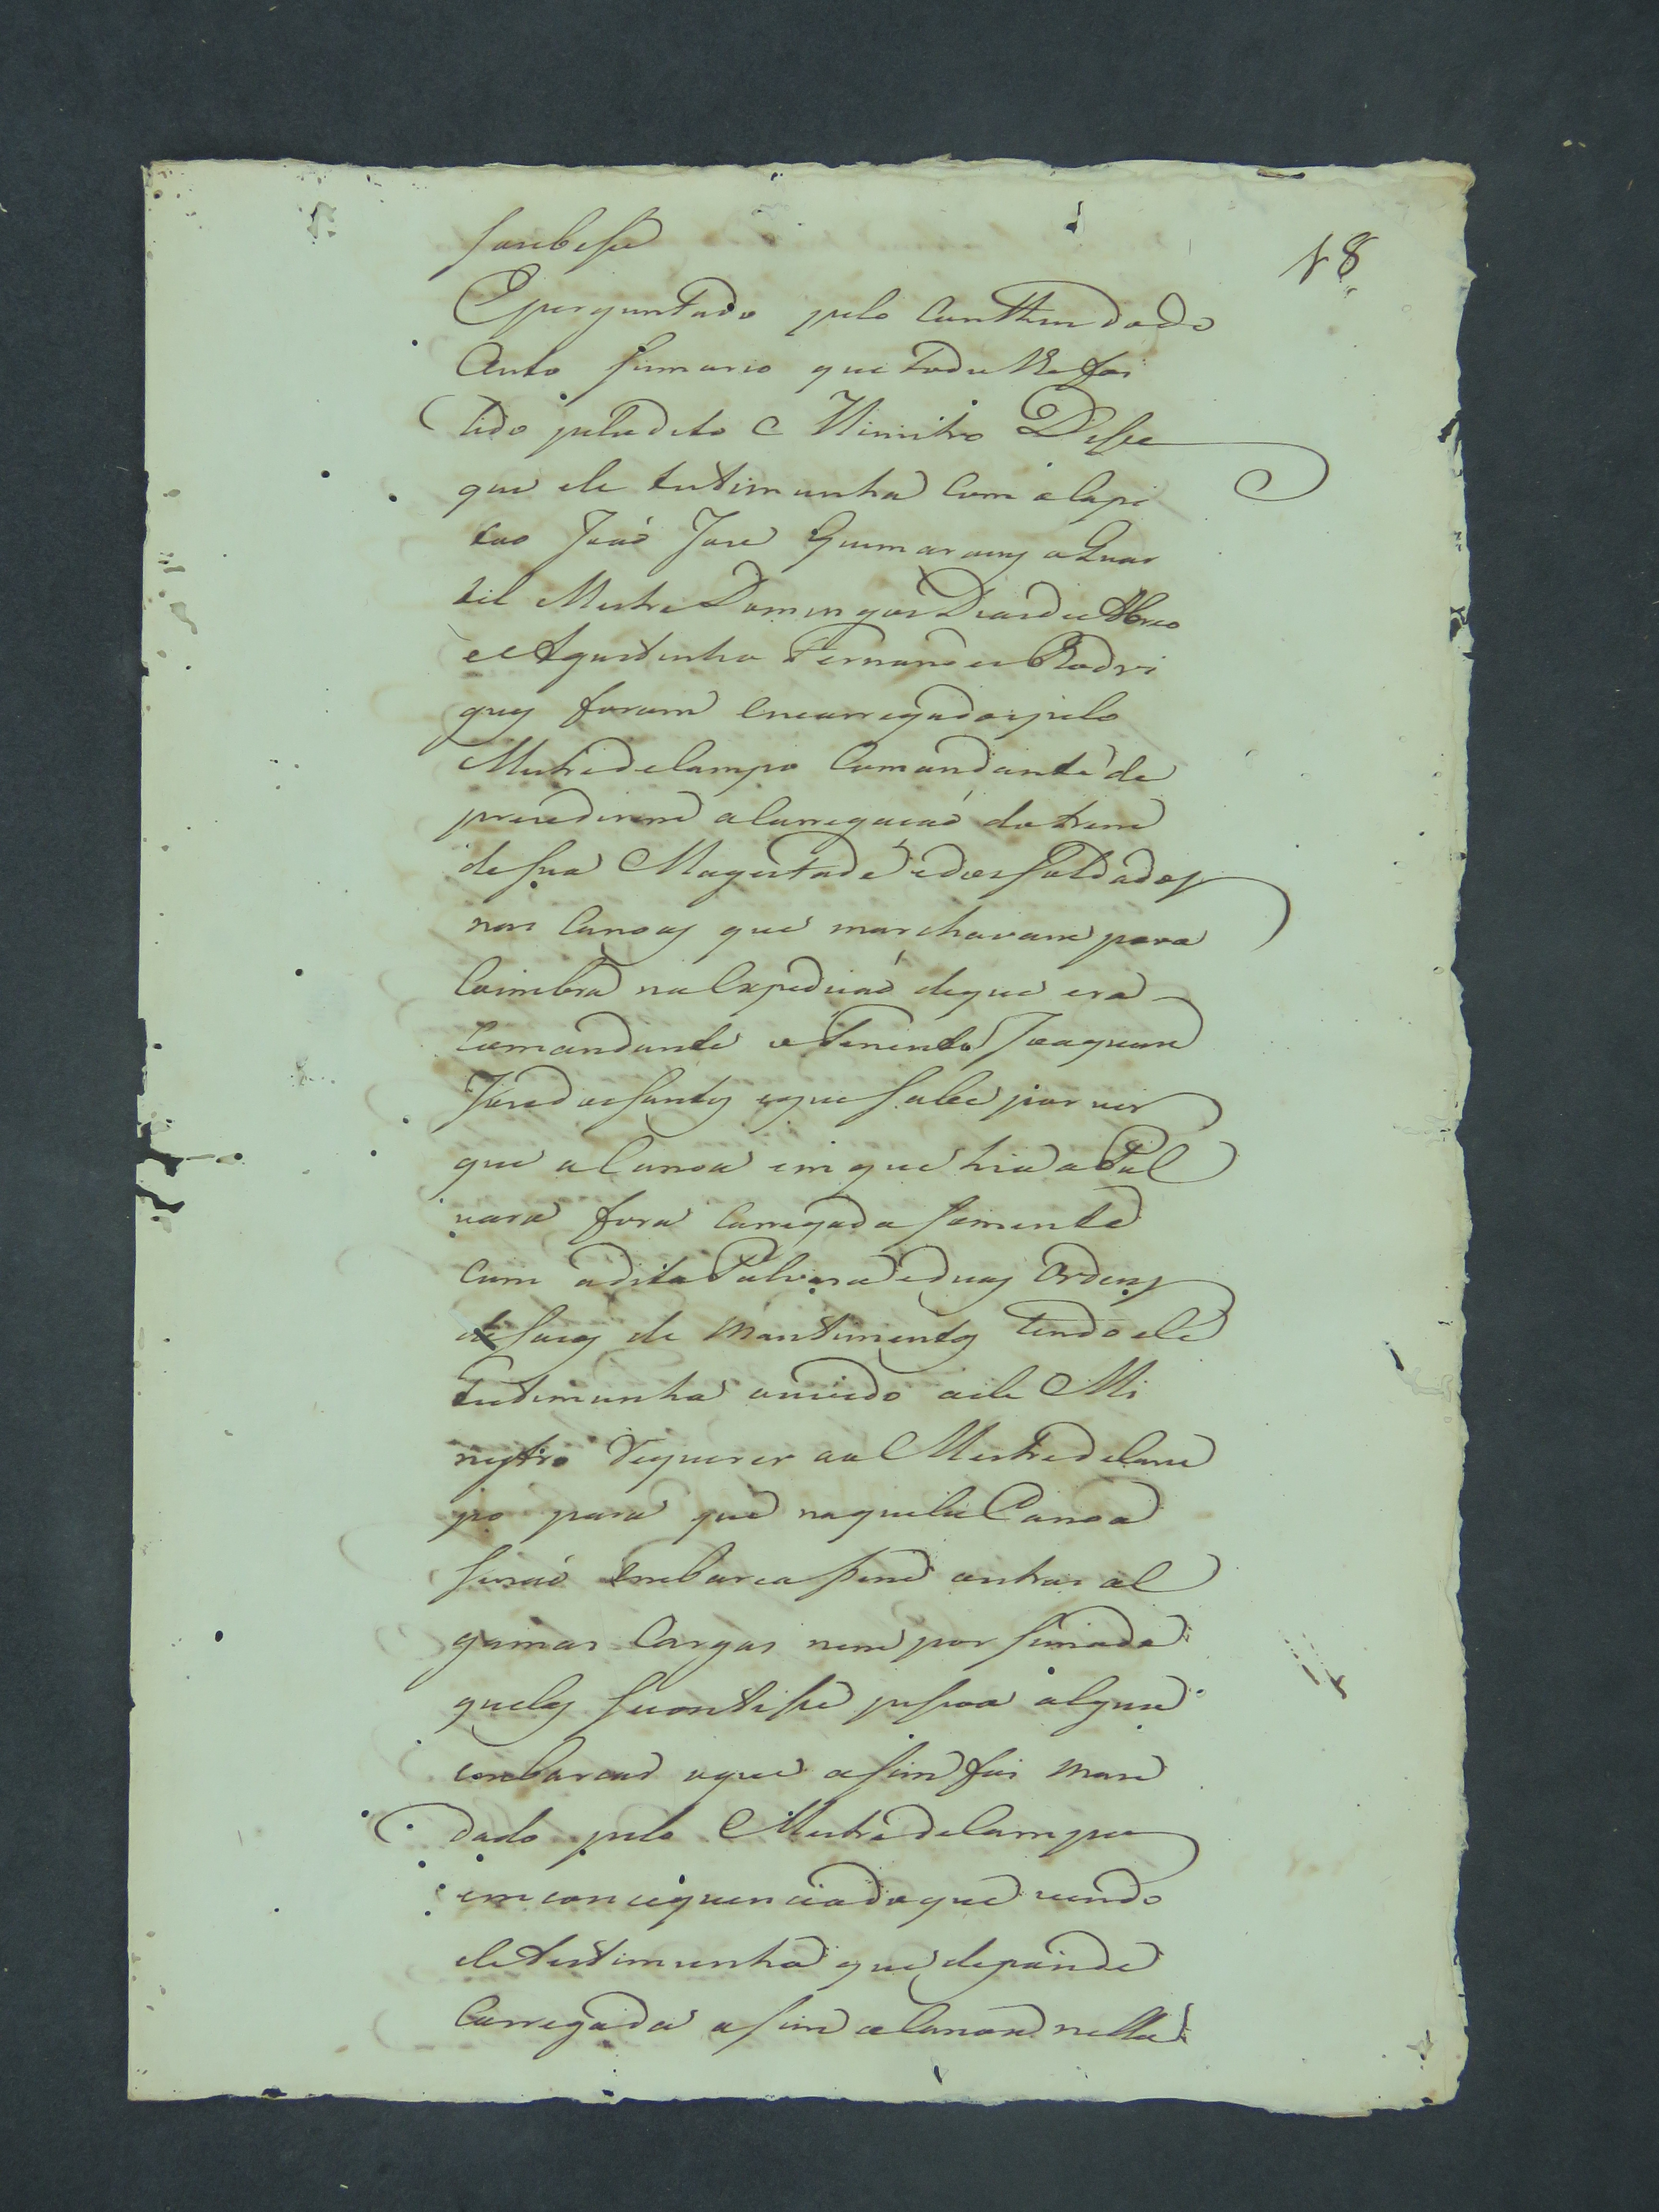 Soubesse
18
E perguntado pelo Conttheudo do
Auto Sumario que todo lhe foi
lido pelo dito e Menistro Disse
que ele testimunha com o Capi
tao João Joze Guimaraens o Quar
tel Mestre Domingos Dias de Abreo
e Agustinho Fernandes Rodri
gues foram encarregados pelo
Mestre de Campo Comandante de
precedirem a Carregaçaó do trem
de Sua Magestade e dos Soldados
nas Canoas que marchavam para
Coimbra na Expediçaó de que era
Comandante o Tenente Joaquim
Joze dos Santos e que Sabe por ver
que a Canoa em que hia a Pol
vora fora Carregada Somente
com a dita Polvora e duas Ordens
de Sacos de Mantimentos tendo ele
testimunha ouvido a ele Mi
nistro requerer ao Mestre de Cam
po para que naquela Canoa
Senaó embarcasem outras al
gumas Cargas nem por Sima da
quelas Seontisse pessoa alguma
embarcar o que assim foi Man
dado pelo Mestre de Campo
em concequencia do que vendo
ele testimunha que depois de
Carregada assim a Canoa nella